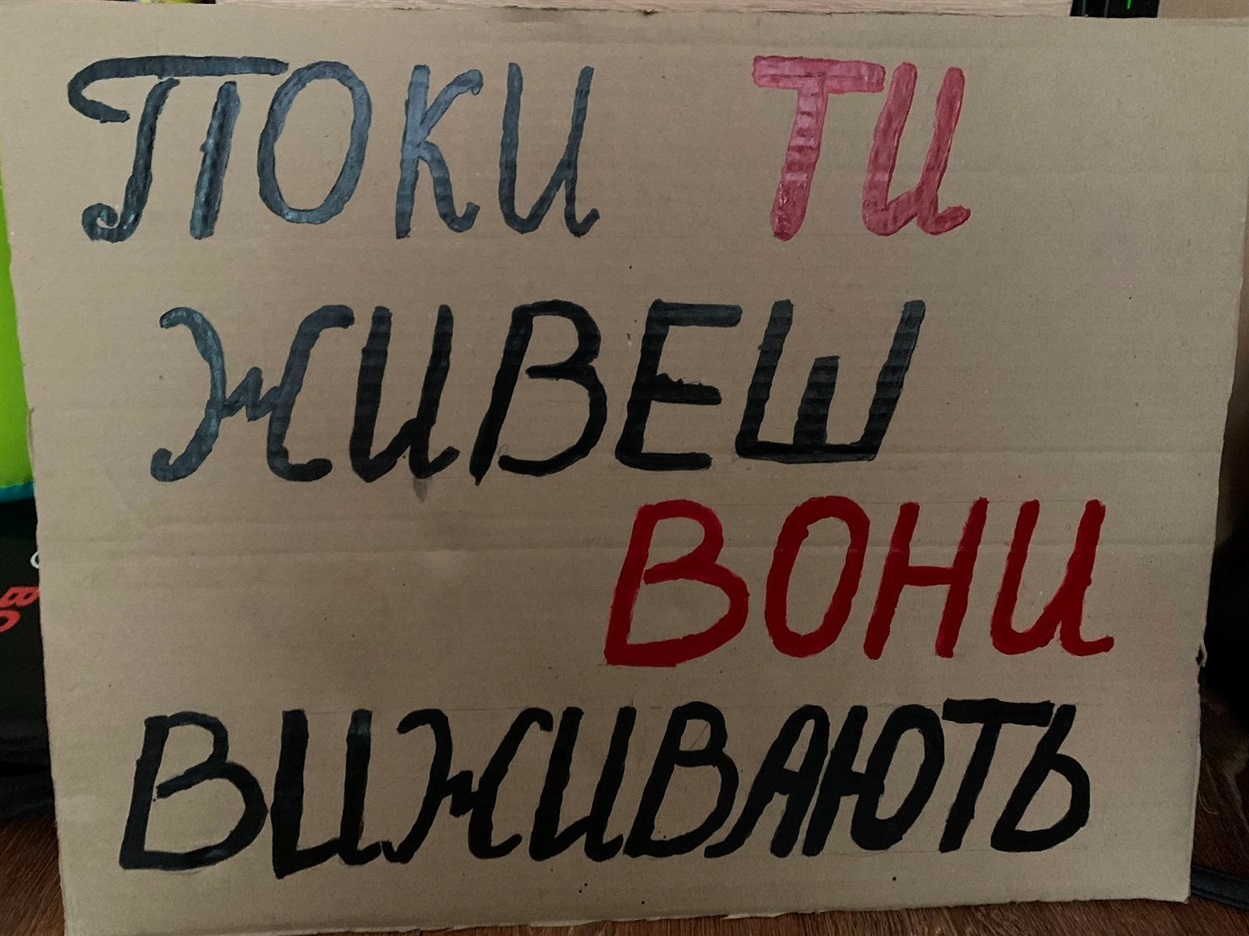 ПОКИ ТИ
ЖИВЕШ
ВОНИ
ВИЖИВАЮТЬ